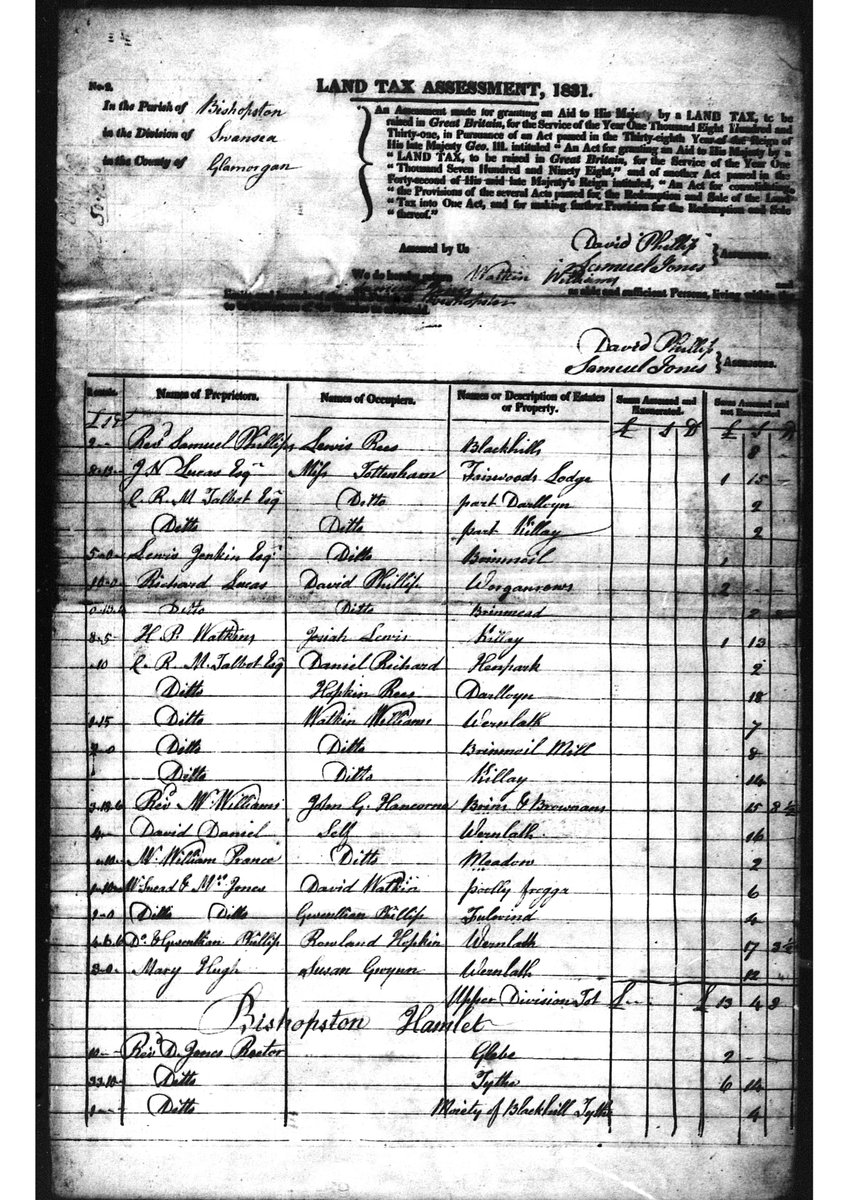 No. 2.
LAND TAX ASSESSMENT, 1831.
In the Parish of Bishopston
in the Division of Swansea
in the County of Glamorgan
An Assessment made for granting an Aid to His Majesty by a LAND TAX, to be
raised in Great Britain, for the Service of the Year One Thousand Eight Hundred and
Thirty-one, in Pursuance of an Act passed in the Thirty-eighth Year of the Reign of
His late Majesty Geo. III. intituled "An Act for granting an Aid to His Majesty by a
"LAND TAX, to be raised in Great Britain, for the Service of the Year One
"Thousand Seven Hundred and Ninety Eight," and of another Act passed in the
Forty-second of His said late Majesty's Reign intituled, "An Act for consolidating
"the Provisions of the several Acts passed for the Redemption and Sale of the Land
"Tax into One Act, and for making further Provision for the Redemption and Sale
"thereof."
Assessed by Us David Phillip
Samuel Jones } Assessors.
We do hereby Watkin Williams and
as able and sufficient Persons, living within the
Bishopston
David Phillip
Samuel Jones } Assessors.
Names of Proprietors. Names of Occupiers. Names or Description of Estates or Property. Sums Assessed and Exonerated. Sums Assessed and not Exonerated
£ S D £ S D
Revd Samuel Phillips Lewis Rees Blackhills 8 -
J N Lucas Esqr Miss Tottenham Fairwoods Lodge 1 15 -
C. R. M Talbot Esq Ditto part Darlloyn 2
Ditto Ditto part Killay 2
5-0- Lewis Jenkin Esqr Ditto Brinmoil 1
10-0 Richard Lucas David Phillip Worganrows 2 - -
Ditto Ditto Brinmead 2
8-5- H P Watkins Josiah Lewis Killay 1 13 -
-10 C. R. M. Talbot Esq Daniel Richard Henpark 2
Ditto Hopkin Rees Darlloyn 18
1-15 Ditto Watkin Williams Wernlath 7
Ditto Ditto Brinmoil Mill 8
Ditto Ditto Killay 14
3-18-6 Revd W Williams John G. Hancorne Brins & Brownans 15 8 ½
4- David Daniel Self Wernlath 16
-10- Mr William Prance Ditto Meadow 2
1-10- & Mrs Jones David Watkin poolly frogga 6
Ditto Ditto Gwenllian Phillip 4
4-6-6 Do & Gwenllian Phillip Rowland Hopkin Wernlath 17 3 ½
3-0- Mary Hugh Susan Gwynn Wernlath 12
Upper Division Tot £ -- £ 13 4 2
Bishopston Hamlet
10-- Revd D. Jones Rector Glebe 2 -
33-10- Ditto Tythe 6 14
1-- Ditto Moiety of Blackhill Tythe 4